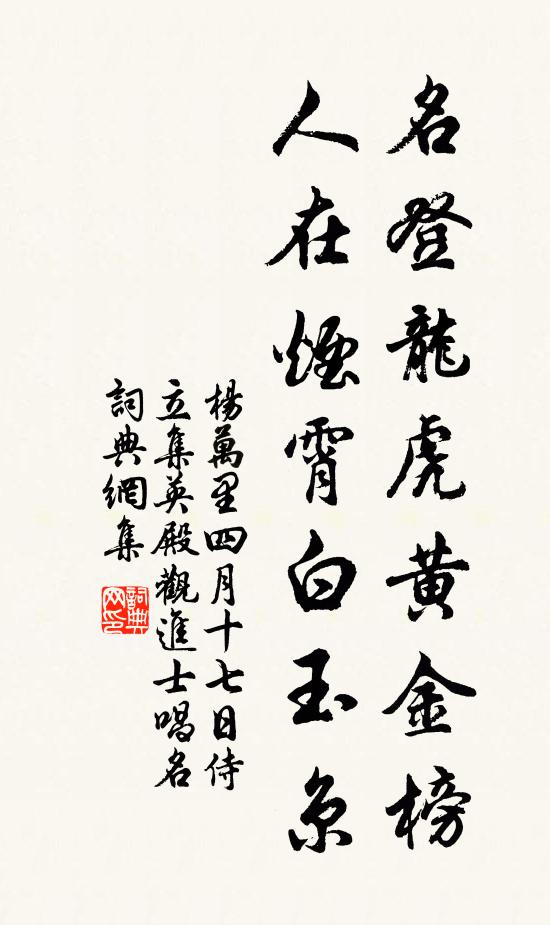 名登龍虎黄金榜
人在煙霄白玉京
楊萬里四月十七日侍
立集英殿觀進士唱名
詞典網集
詞典网印